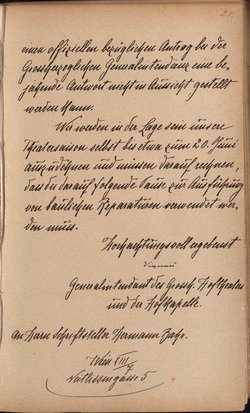 21.
einen offiziellen bezüglichen Antrag bei der
Grossherzoglichen Generalintendanz eine be-
jahende Antwort nicht in Aussicht gestellt
werden kann.
Wir werden in der Lage sein unsere
Theatersaison selbst bis etwa zum 20. Juni
auszudehnen und müssen darauf rechnen,
dass die darauf folgende Pause zur Ausführung
von baulichen Reparaturen verwendet wer-
den muss.
Hochachtungsvoll ergebenst
Generalintendanz des Grossh. Hoftheaters
und der Hofkapelle.
An Herrn Schriftsteller Hermann Bahr.
Wien XIII
7
Veitlissengasse 5